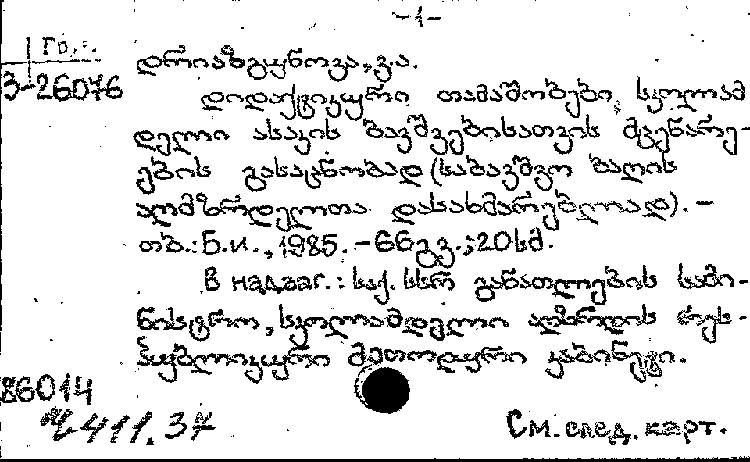 -1-
Гр.
3-26076
დრიაზგუნოვა, ვ.ა.
დიდაქტიკური თამაშობები, სკოლამ
დელი ასაკის ბავშვებისათვის მცენარე-
ების გასაცნობად (საბავშვო ბაღის
აღმზრდელთა დასახმარებლად). –
თბ.: Б.и., 1985. – 66 გვ.; 20 სმ.
В надзаг.: საქ. სსრ განათლების სამი-
ნისტრო, სკოლამდელი აღზრდის რეს-
პუბლიკური მეთოდური კაბინეტი.
86014
Ч 411.37
См. след. карт.